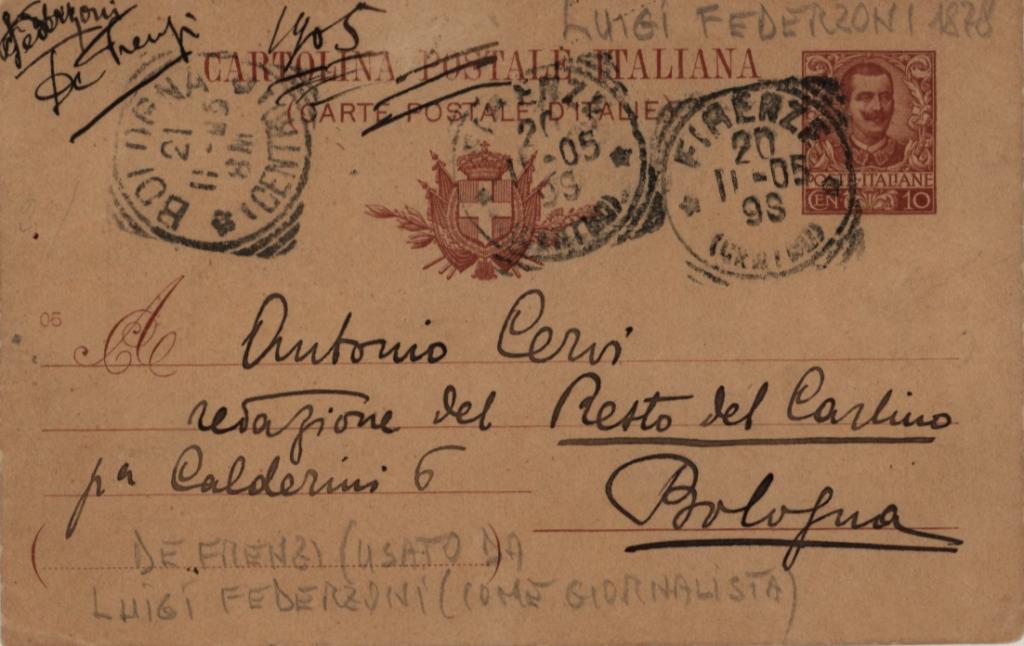 Federzoni
De Frenzi
1905
LUIGI FEDERZONI 1878
CARTOLINA POSTALE ITALIANA
(CARTE POSTALE D'ITALIE)
BOLOGNA
21
11-05
8M
(CENTRO)
FIRENZE
20
11-05
9S
FIRENZE
20
11-05
9S
(CENTRO)
POSTE ITALIANE
CEN 10
05
A Antonio Cervi
redazione del Resto del Carlino
pa Calderini 6
Bologna
DE FRENZI (USATO DA
LUIGI FEDERZONI (COME GIORNALISTA)